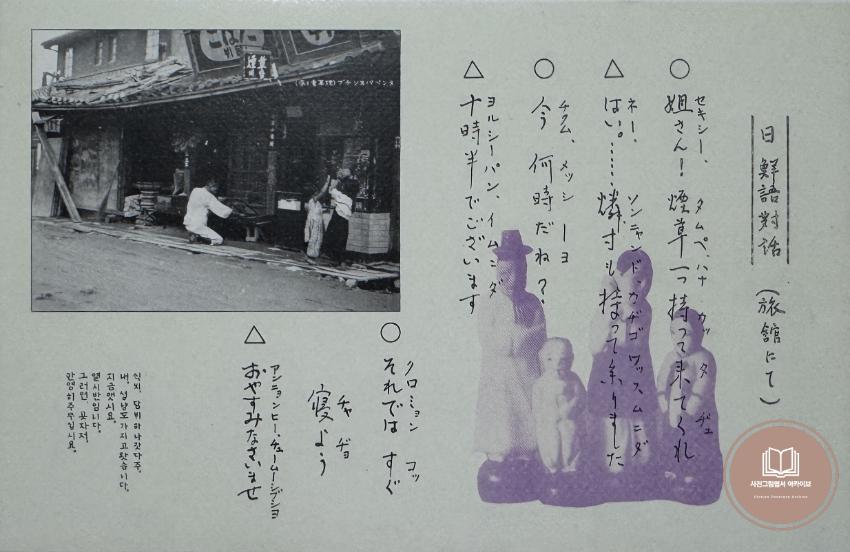 日鮮語對話 (旅館にて)
セキシー、タムペ、ハナ カッタ ヂェ
○ 姐さん!煙草一つ持って来てくれ
ネー、ソンニャンド、カヂゴ ワッスムニダ
△ はい。……燐寸も持って参りました
チクム、メッシーヨ
○ 今何時だね?
ヨルシーパン、イムニダ
△ 十時半でございます
クロミョン コッ
○ それでは すぐ
チャヂョ
寝よう
アンニョンヒー、チュームーシプショ
△ おやすみなさいませ
색씨, 담배하나갓다주.
내, 성냥도가지고왓습니다.
지금멧시요.
열시반입니다.
그러면, 곳자저.
안영히주무십시요.
사진그림엽서 아카이브